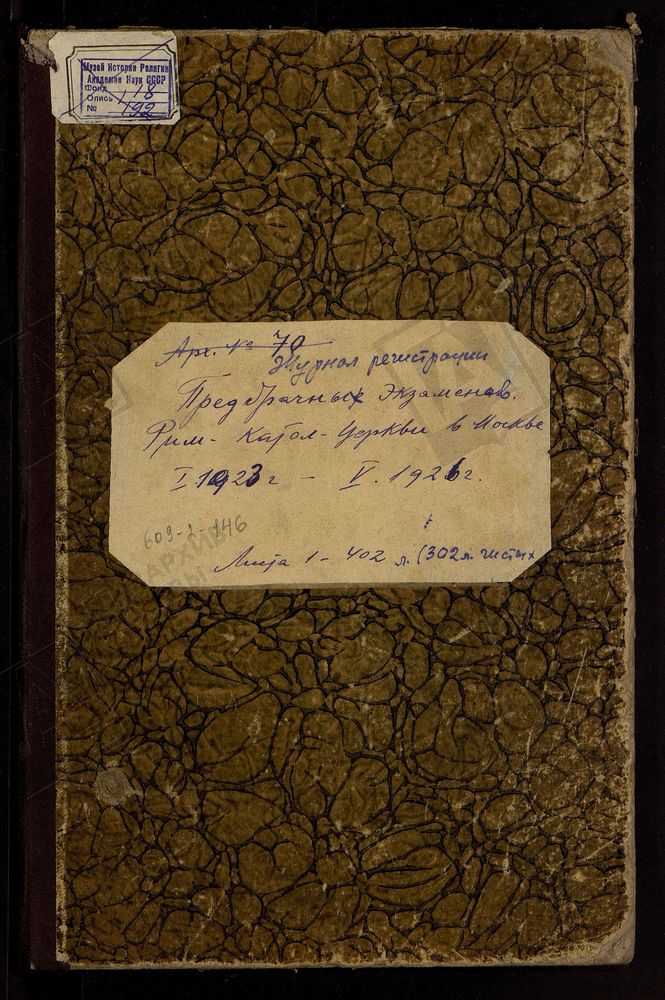 Музей Истории Религии
Академии Наук СССР
Фонд 18
Опись
№ 192
Арх. № 70
Журнал регистрации
Предбрачных Экзаменов.
Рим- Катол- Церкви в Москве
I.1923г – V.1926г.
609-1-146
Листа 1- 402 л. (302л. чистых